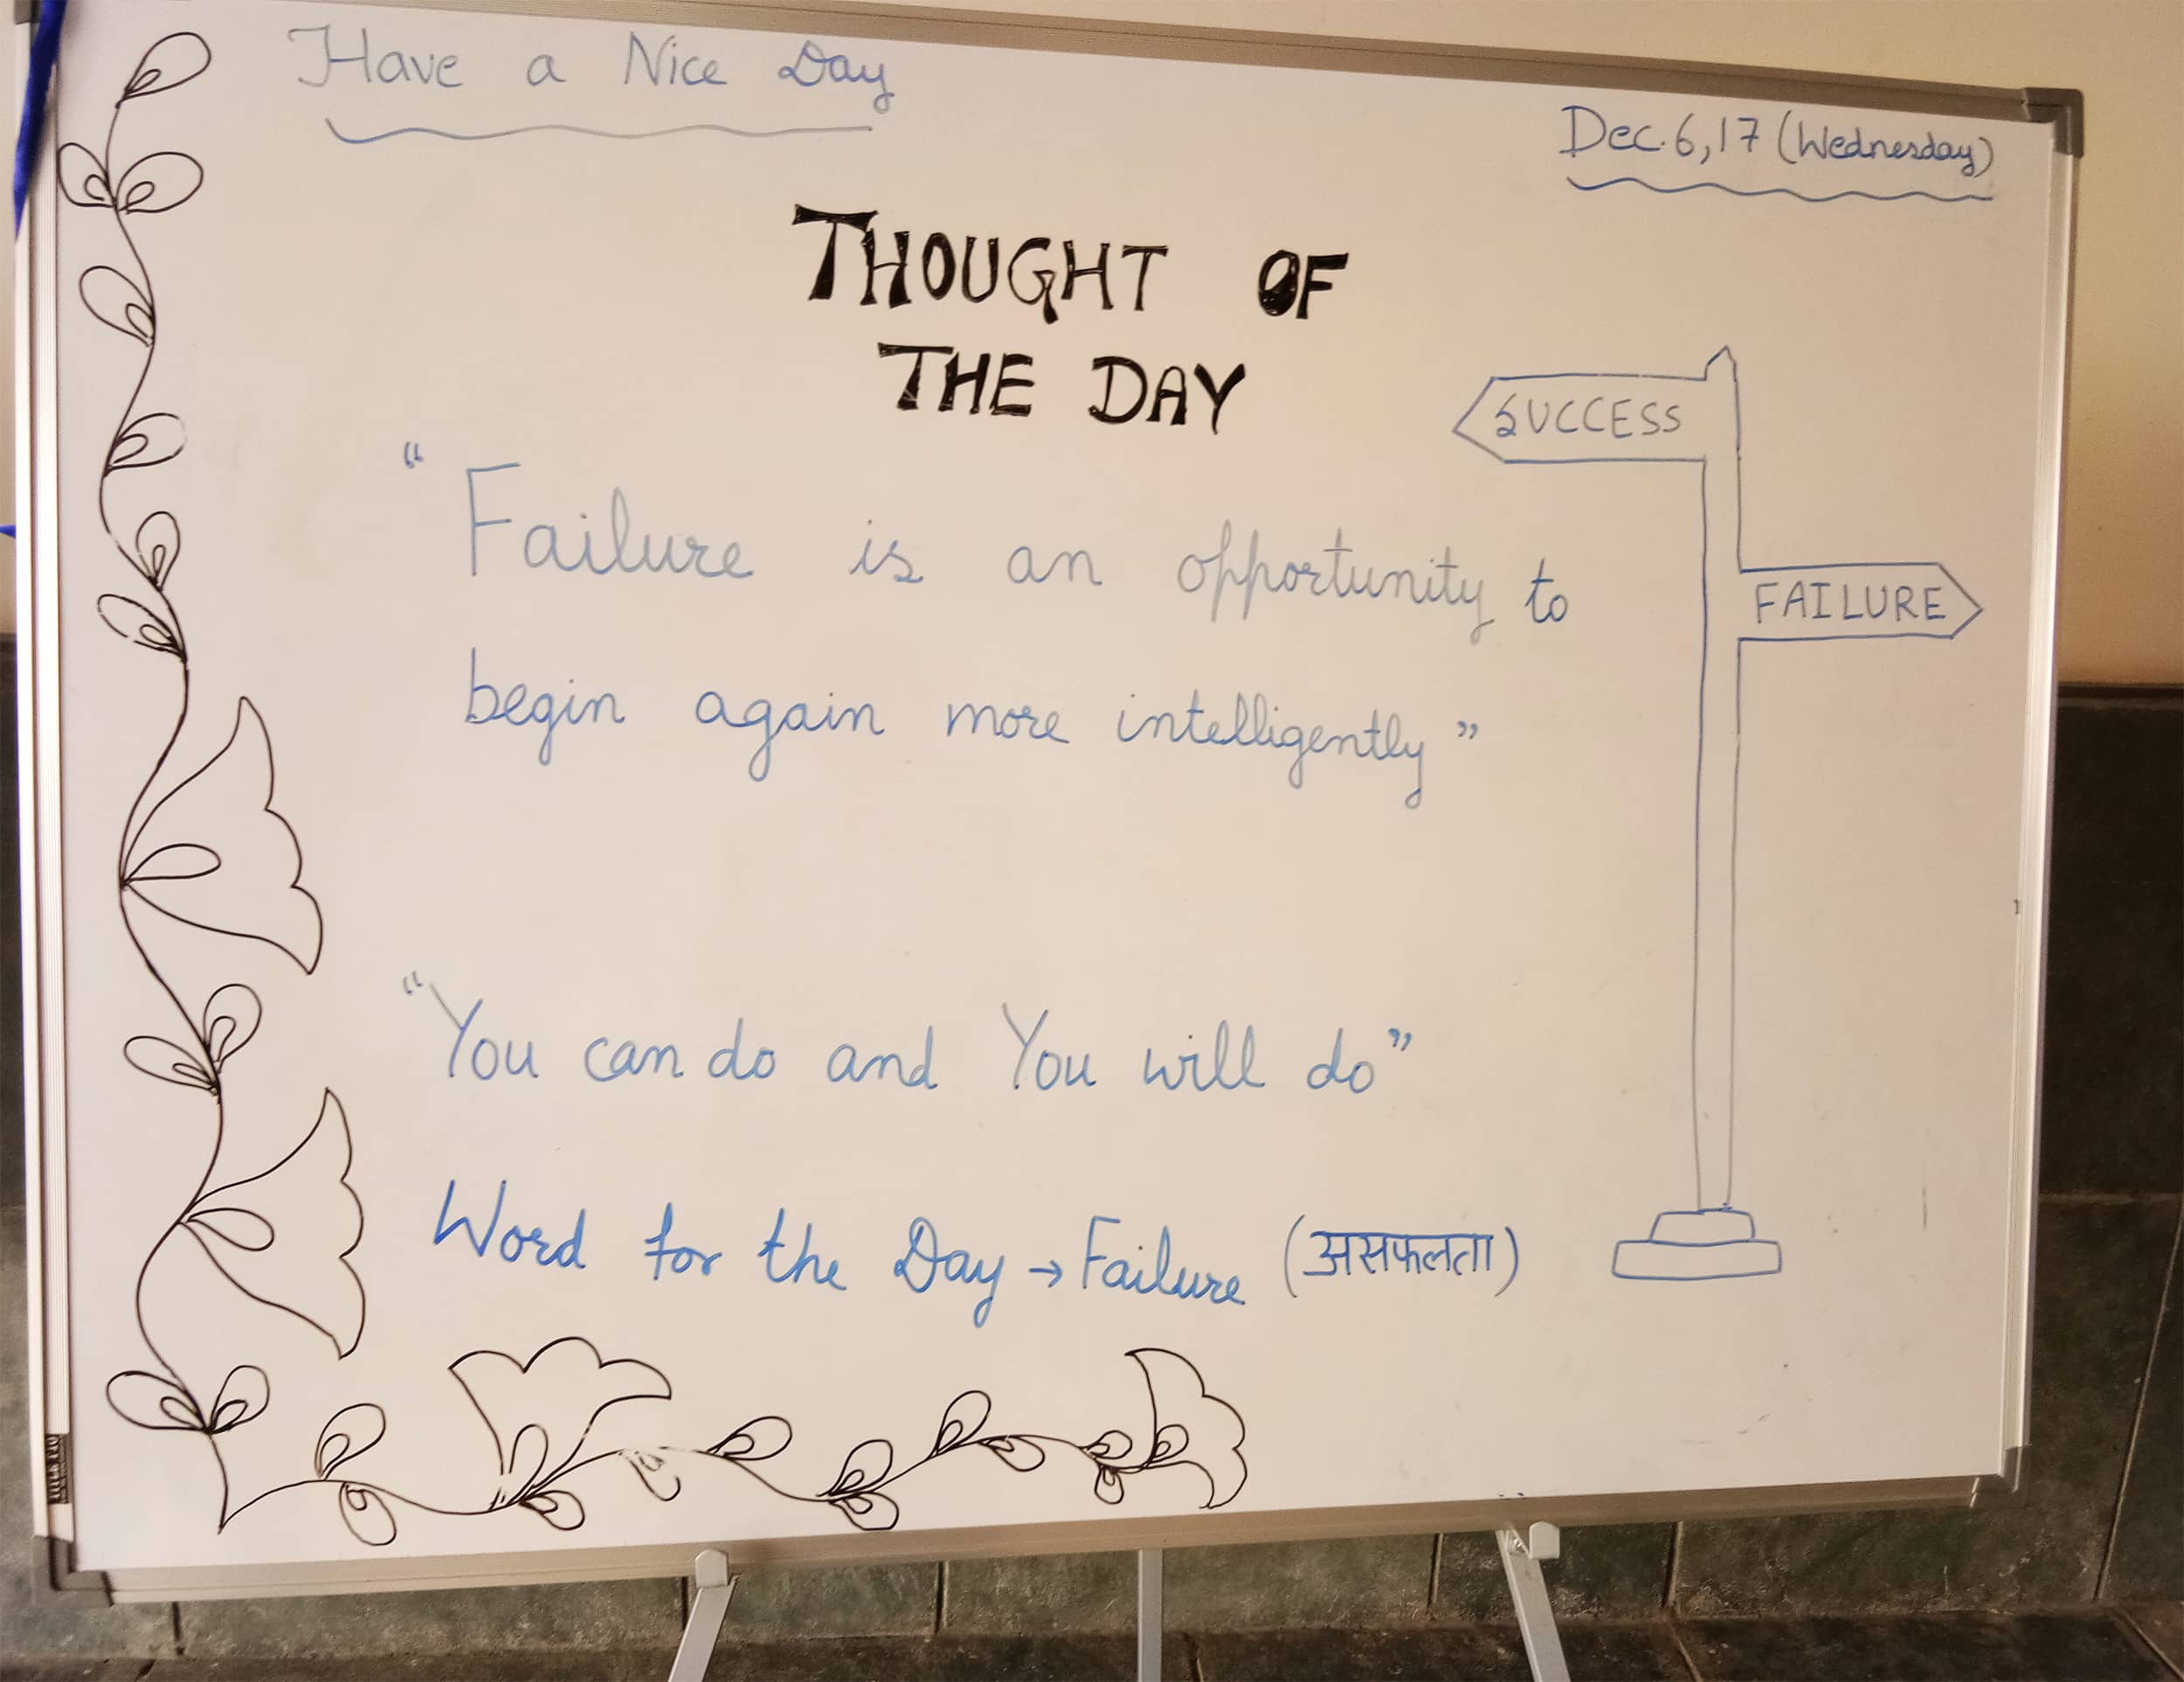 Have a Nice Day
Dec. 6, 17 (Wednesday)
THOUGHT OF
THE DAY
SUCCESS
FAILURE
“Failure is an opportunity to
begin again more intelligently”
“You can do and You will do”
Word for the Day → Failure (असफलता)